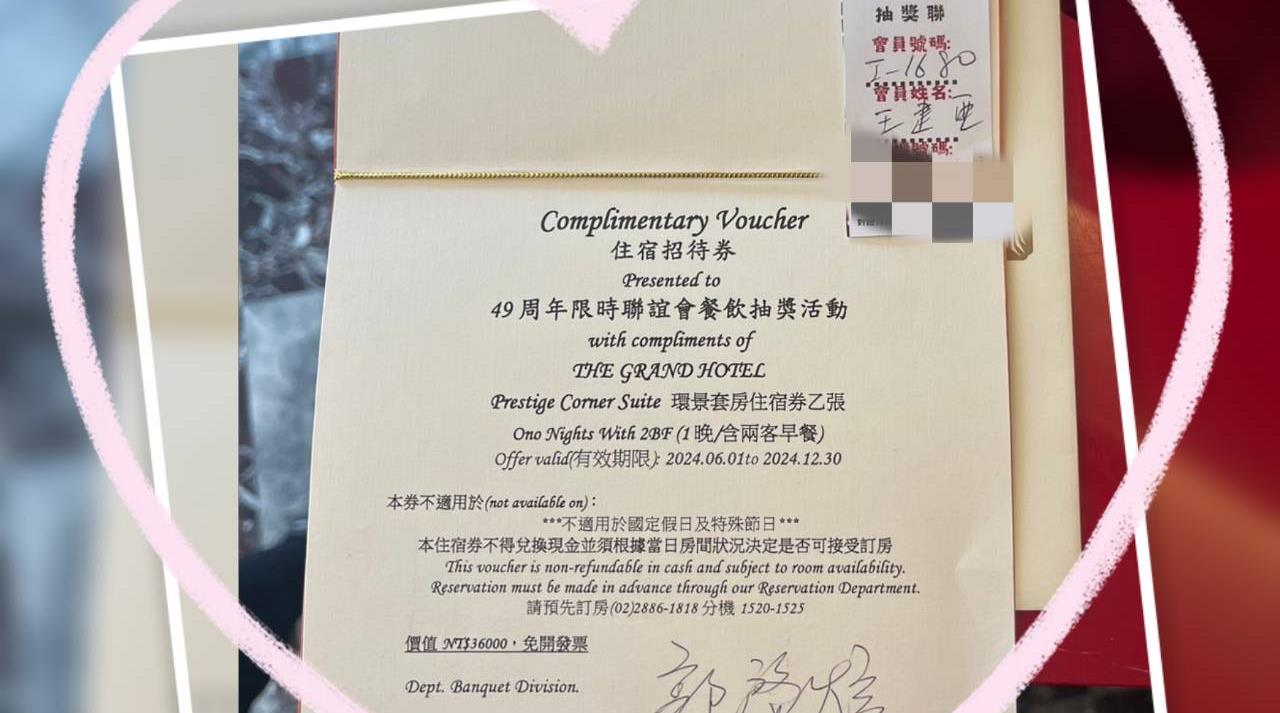 抽獎聯
會員號碼:
I-1680
會員姓名:
王建
號碼:
Complimentary Voucher
住宿招待券
Presented to
49周年限時聯誼會餐飲抽獎活動
with compliments of
THE GRAND HOTEL
Prestige Corner Suite 環景套房住宿券乙張
Ono Nights With 2BF (1晚/含兩客早餐)
Offer valid(有效期限): 2024.06.01to 2024.12.30
本券不適用於(not available on)：
***不適用於國定假日及特殊節日***
本住宿券不得兌換現金並須根據當日房間狀況決定是否可接受訂房
This voucher is non-refundable in cash and subject to room availability.
Reservation must be made in advance through our Reservation Department.
請預先訂房(02)2886-1818 分機 1520-1525
價值 NT$36000，免開發票
Dept. Banquet Division.